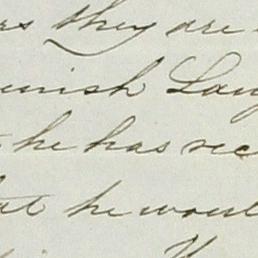 rs they are
nish Lan
he has rec
at he woul